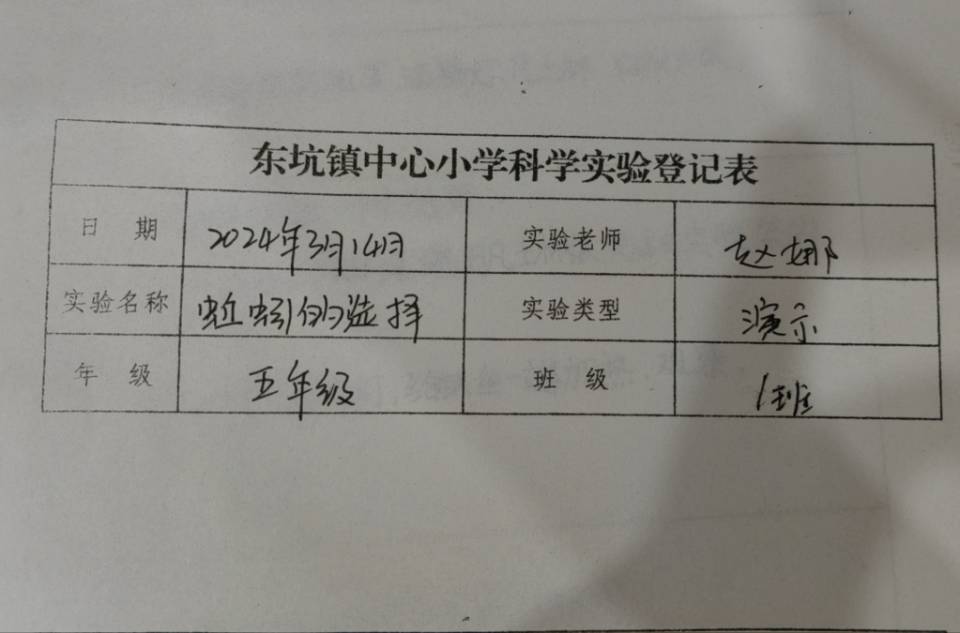 东坑镇中心小学科学实验登记表
日 期 2024年3月14日 实验老师 赵娜
实验名称 蚯蚓的选择 实验类型 演示
年 级 五年级 班 级 1班